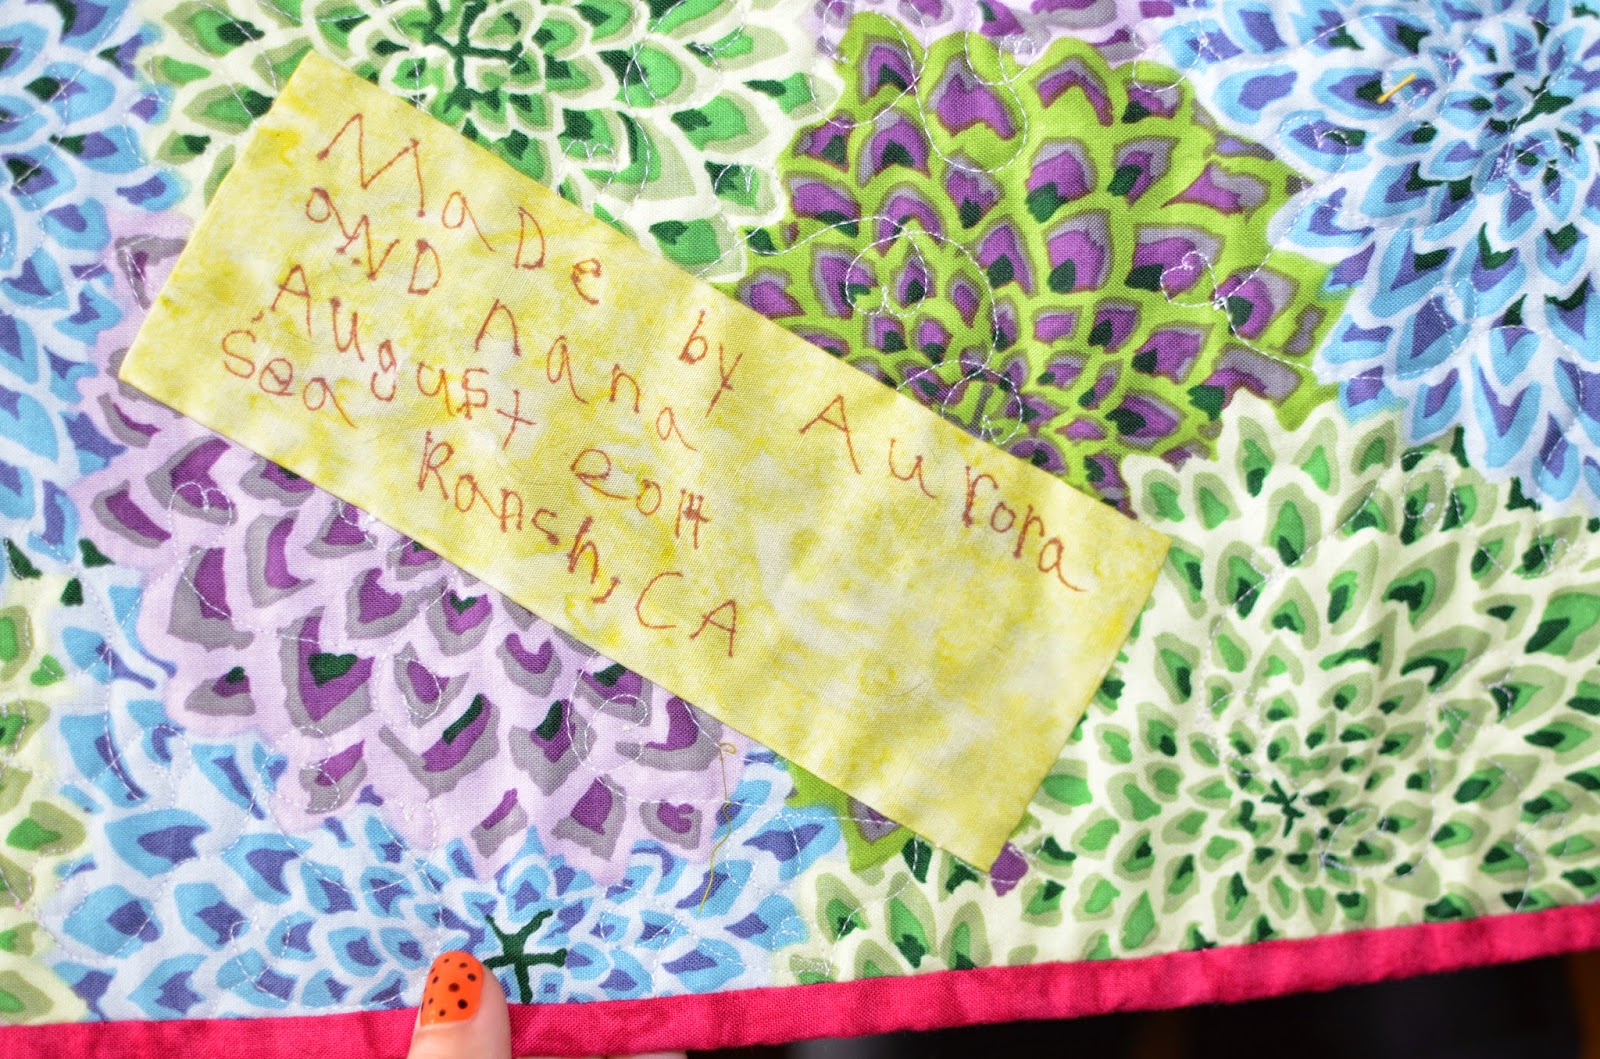 Made by Aurora
aND nana
August 2014
Sea Ranch, CA